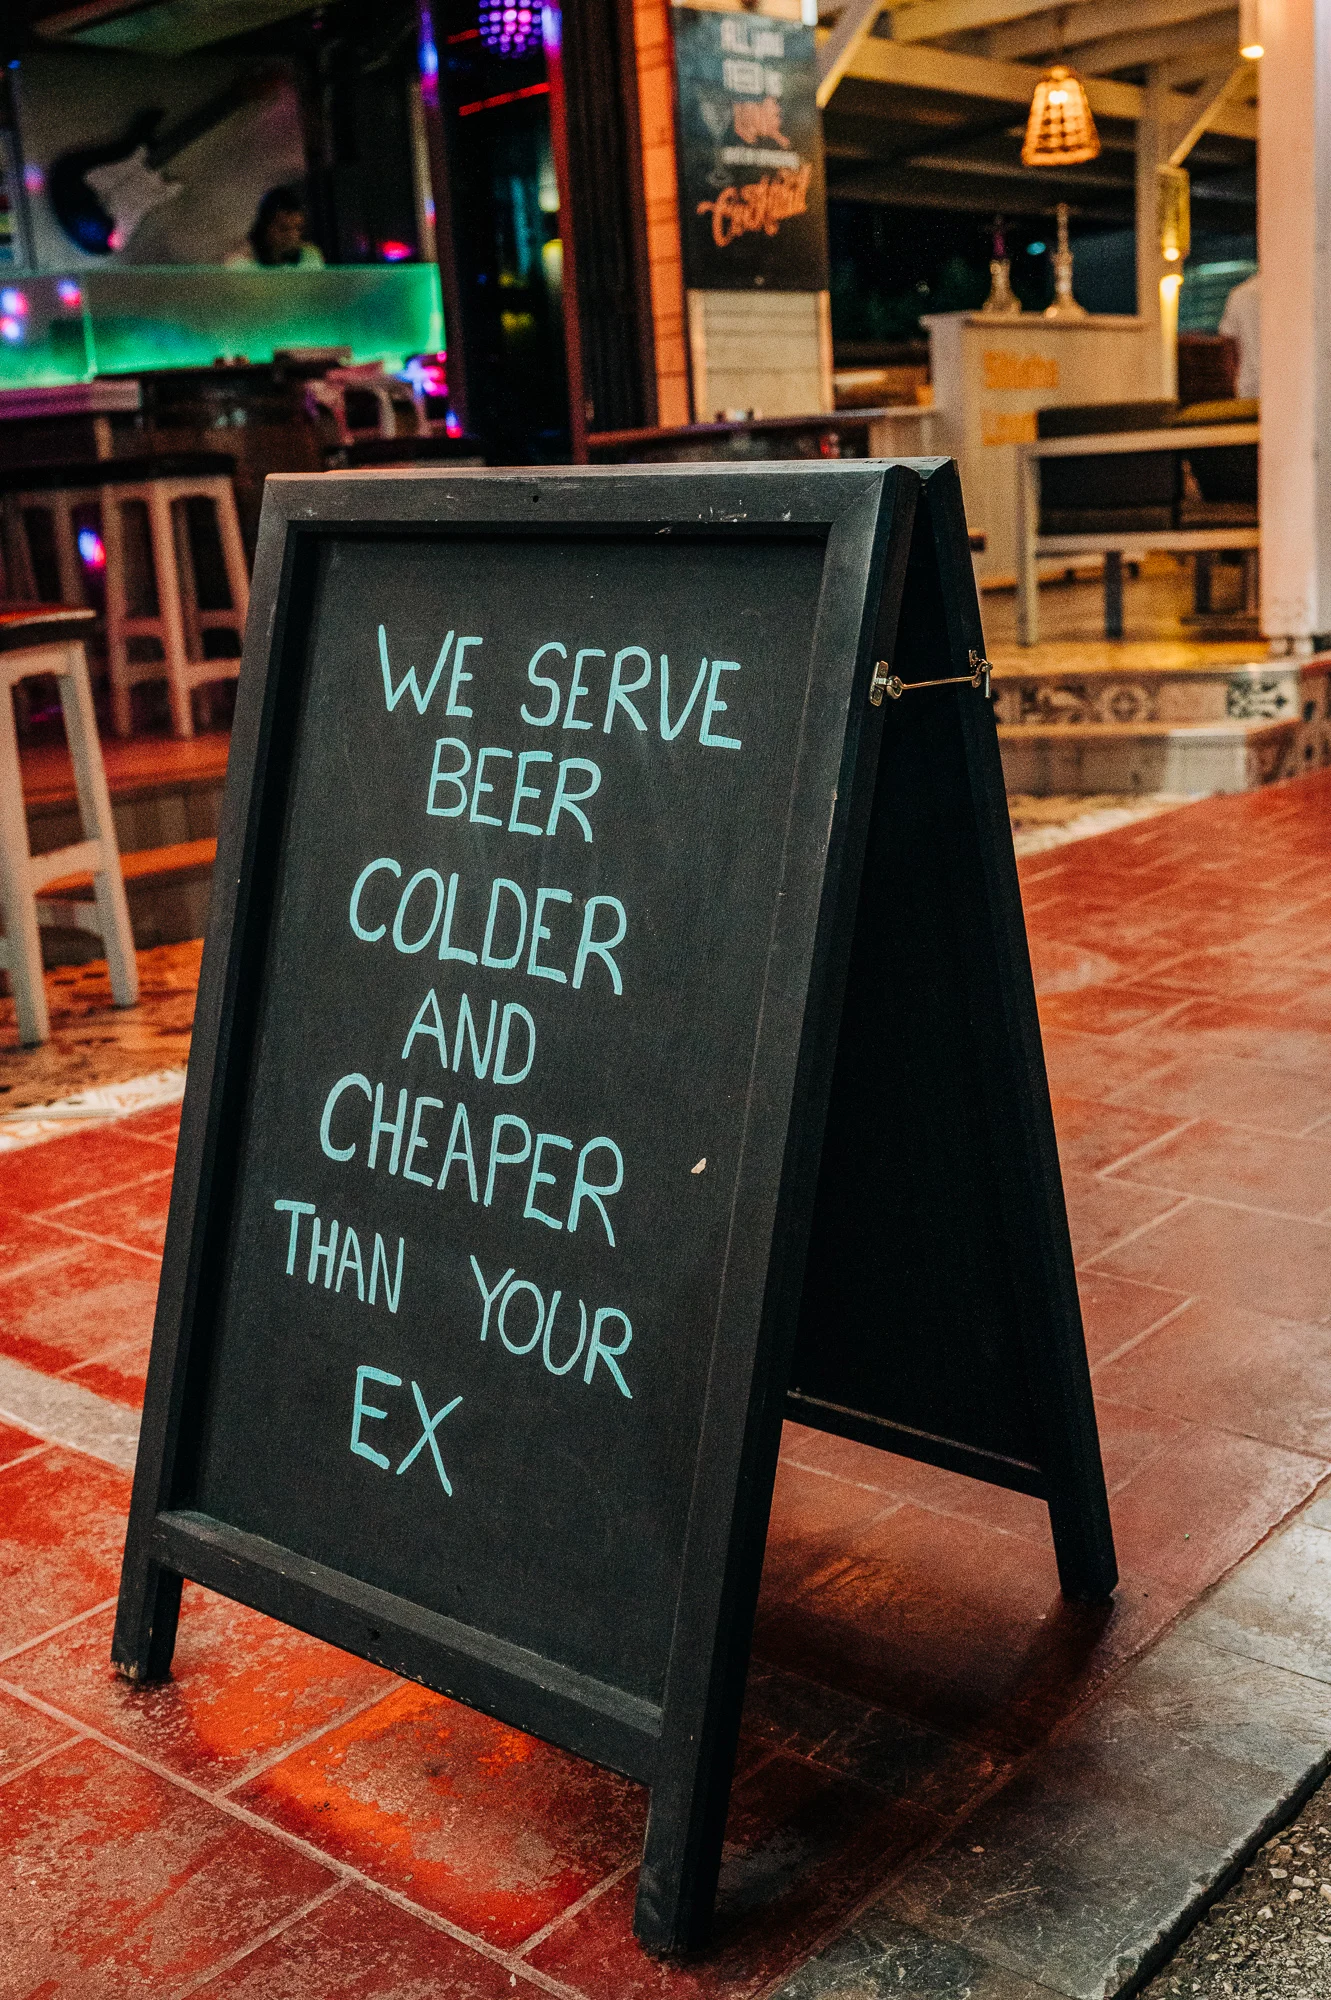 ALL YOU
NEED IS
LOVE
Cocktail
WE SERVE
BEER
COLDER
AND
CHEAPER
THAN YOUR
EX